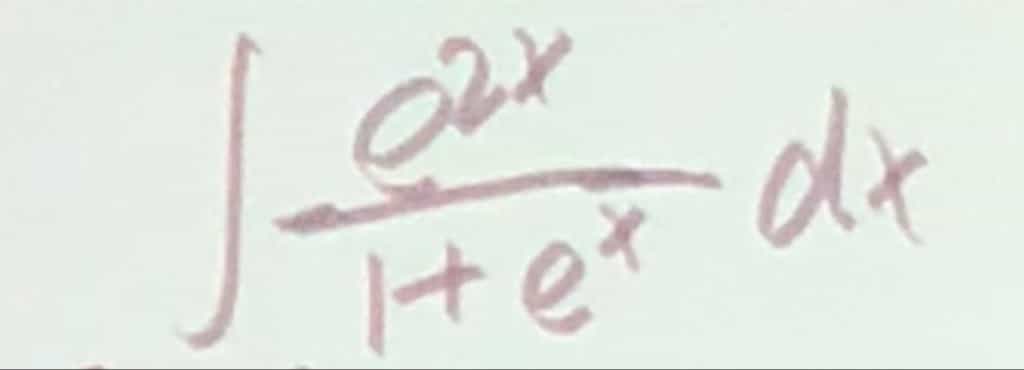 ∫ e^{2x} / (1 + e^x) dx